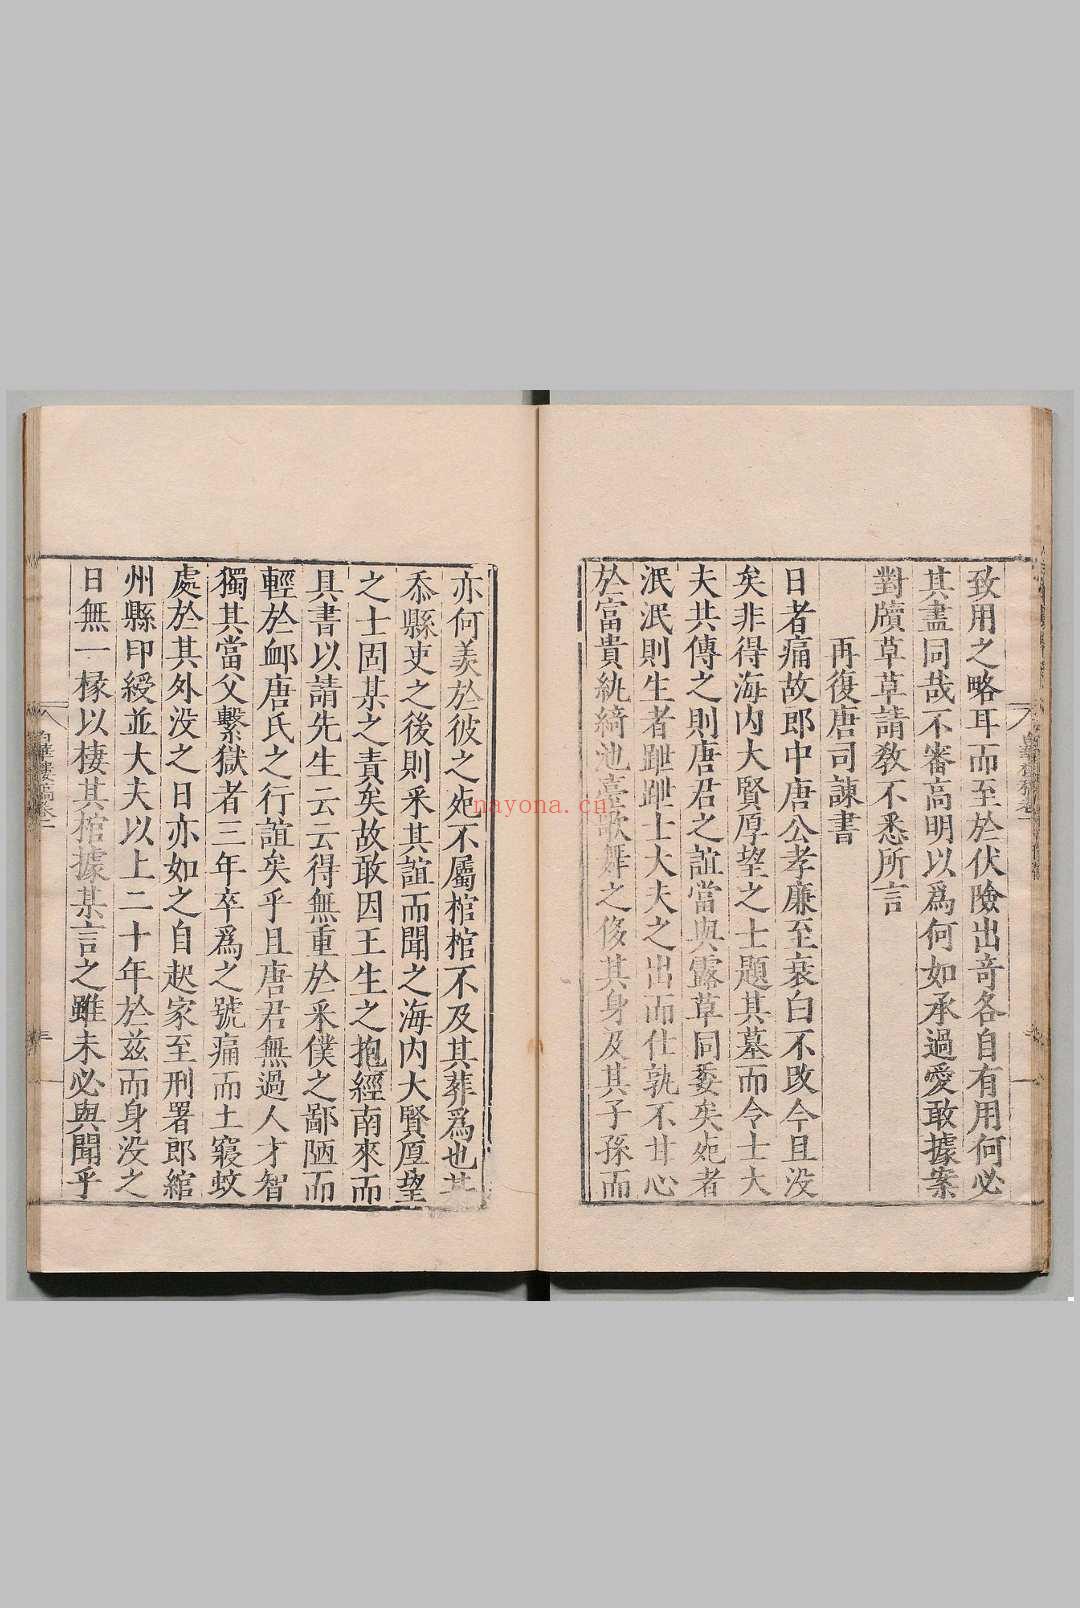 致用之略耳而至於伏險出竒各自有用何必
其盡同哉不審高明以爲何如承過愛敢據案
對牘草草請教不悉所言
再復唐司諫書
日者痛故郎中唐公孝廉至衰白不改今且没
矣非得海内大賢厚望之士題其墓而令士大
夫共傳之則唐君之誼當與露草同委矣死者
泯泯則生者跰跰士大夫之出而仕孰不甘心
於富貴紈綺池臺歌舞之侈其身及其子孫而
亦何羡於彼之死不屬棺棺不及其葬爲也某
忝縣吏之後則采其誼而聞之海内大賢厚望
之士固某之責矣故敢因王生之抱經南來而
具書以請先生云云得無重於采僕之鄙陋而
輕於卹唐氏之行誼矣乎且唐君無過人才智
獨其當父繫獄者三年卒爲之號痛而土寢蚊
處於其外没之日亦如之自起家至刑署郎綰
州縣印綬並大夫以上二十年於兹而身没之
日無一椽以棲其棺據某言之雖未必與聞乎
白華樓稿卷一
nayona.cn